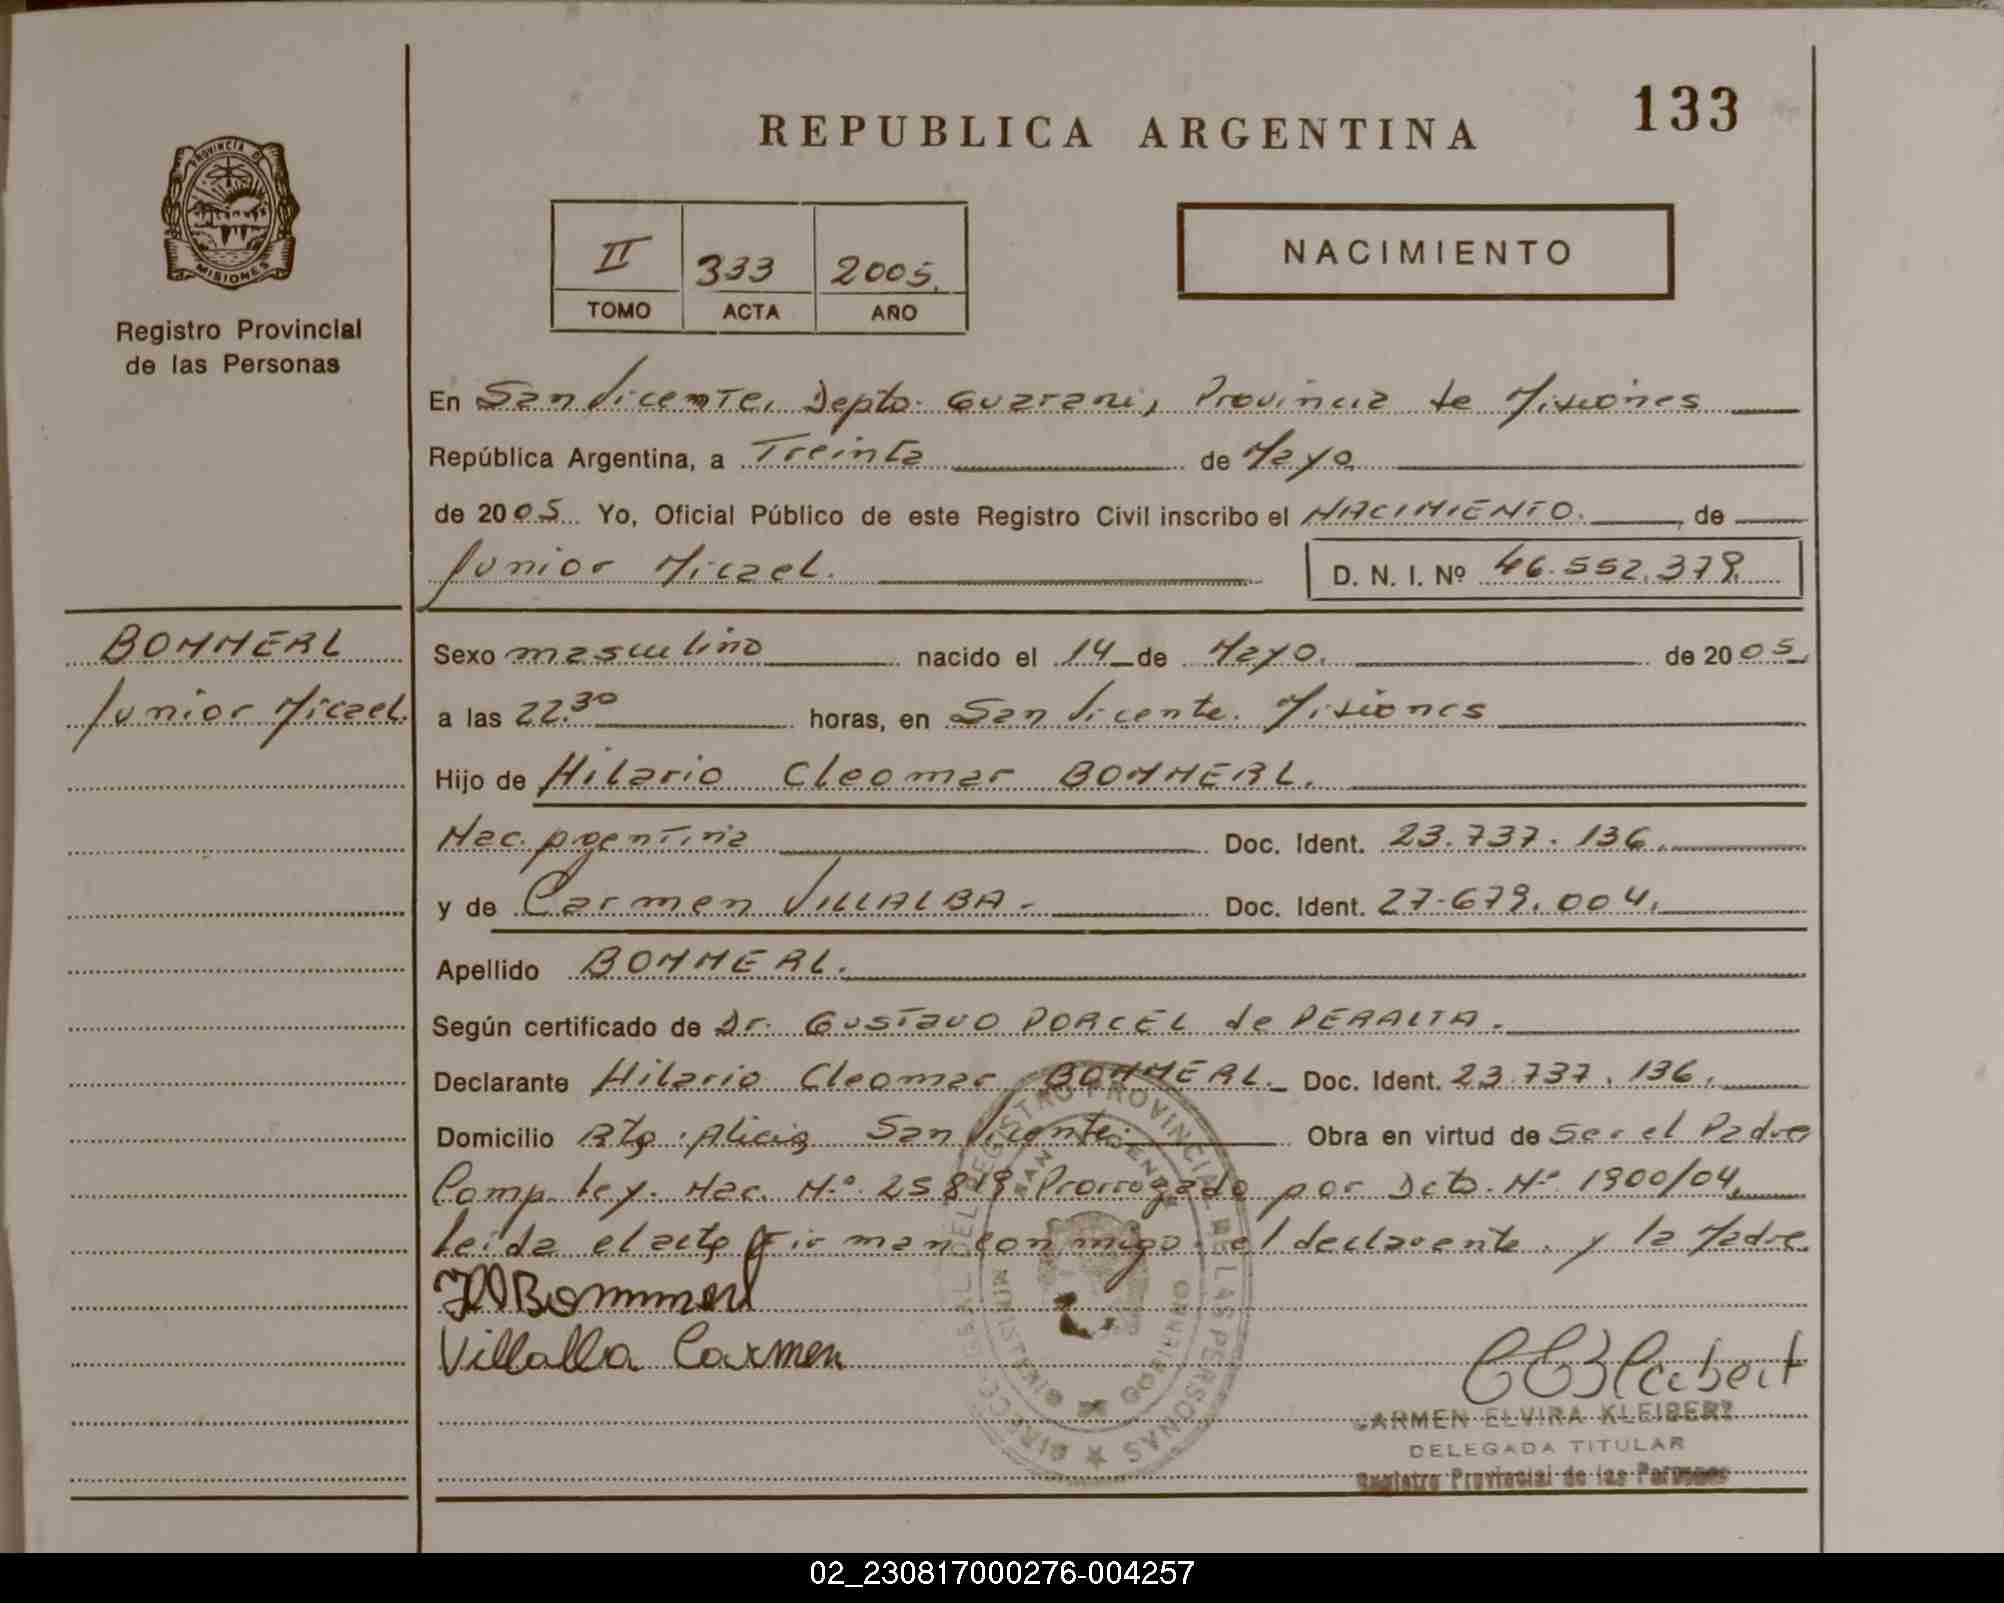 133
REPUBLICA ARGENTINA
PROVINCIA D
MISIONES
Registro Provincial
de las Personas
NACIMIENTO
II 333 2005.
TOMO ACTA AÑO
En San Vicente, Depto. Guarani, Provincia de Misiones
República Argentina, a Treinta de Mayo
de 2005 Yo, Oficial Público de este Registro Civil inscribo el NACIMIENTO. de
Junior Micael. D. N. I. Nº 46.552.379.
BOMMERL
Junior Micael.
Sexo masculino nacido el 14 de Mayo. de 2005.
a las 22.30 horas, en San Vicente. Misiones
Hijo de Hilario Cleomar BOMMERL.
Nac. Argentina Doc. Ident. 23.737.136.
y de Carmen VILLALBA - Doc. Ident. 27.679.004.
Apellido BOMMERL.
Según certificado de Dr. Gustavo PORCEL de PERALTA.
Declarante Hilario Cleomar BOMMERL. Doc. Ident. 23.737.136.
Domicilio Bto. Alicia San Vicente. Obra en virtud de Ser el Padre
Comp. Ley. Nac. Nº 25.819 Prorrogado por Dcto. Nº 1900/04,
Leida el acta Firman conmigo el declarante y la Madre.
Bommerl
Villalba Carmen
REGISTRO PROVINCIAL DE LAS PERSONAS
MINISTERIO GOBIERNO
CARMEN ELVIRA KLEIBERT
DELEGADA TITULAR
Registro Provincial de las Personas
02_230817000276-004257